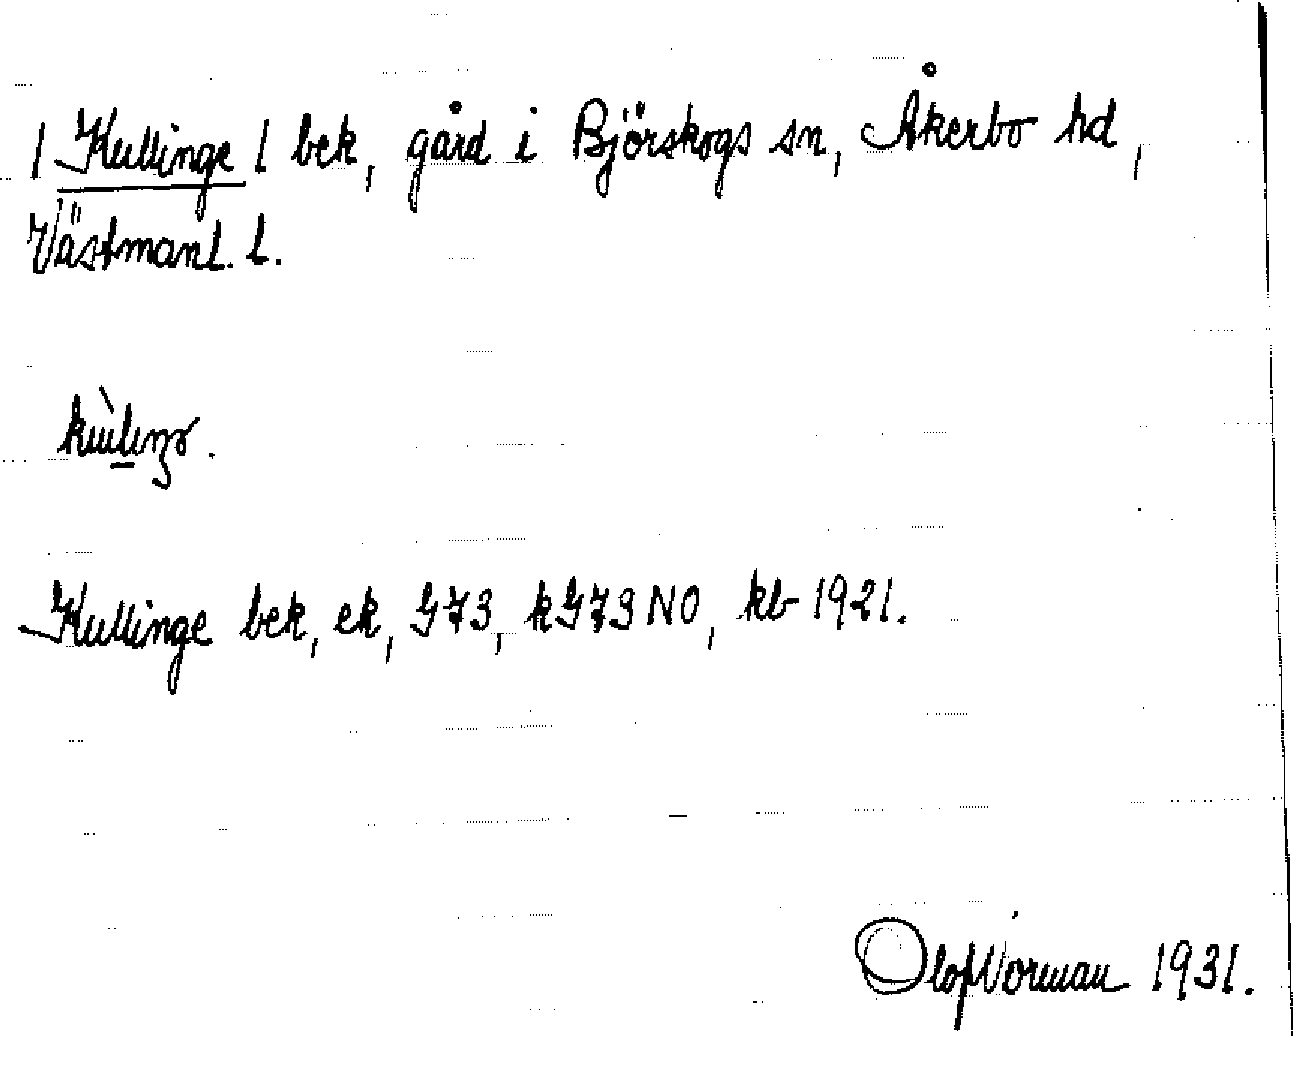 / Kullinge / bek, gård i Björskogs sn, Åkerbo hd,
Västmanl. l.
Kullinge bek, ek, G73, kG73NO, kb 1921.
Olof Norman 1931.